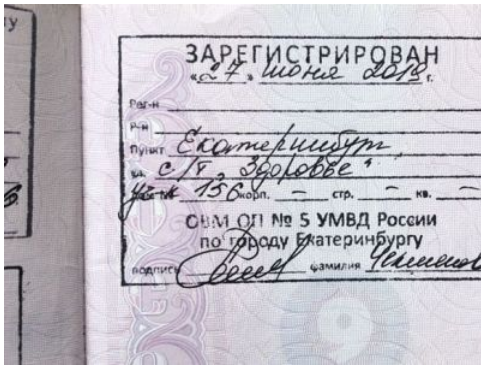 ЗАРЕГИСТРИРОВАН
«27» июня 2018 г.
Рег-н
Р-н
Пункт Екатеринбург
ул. с/т "Здоровье"
уч-к 156 корп. — стр. — кв. —
ОВМ ОП № 5 УМВД России
по городу Екатеринбургу
подпись фамилия